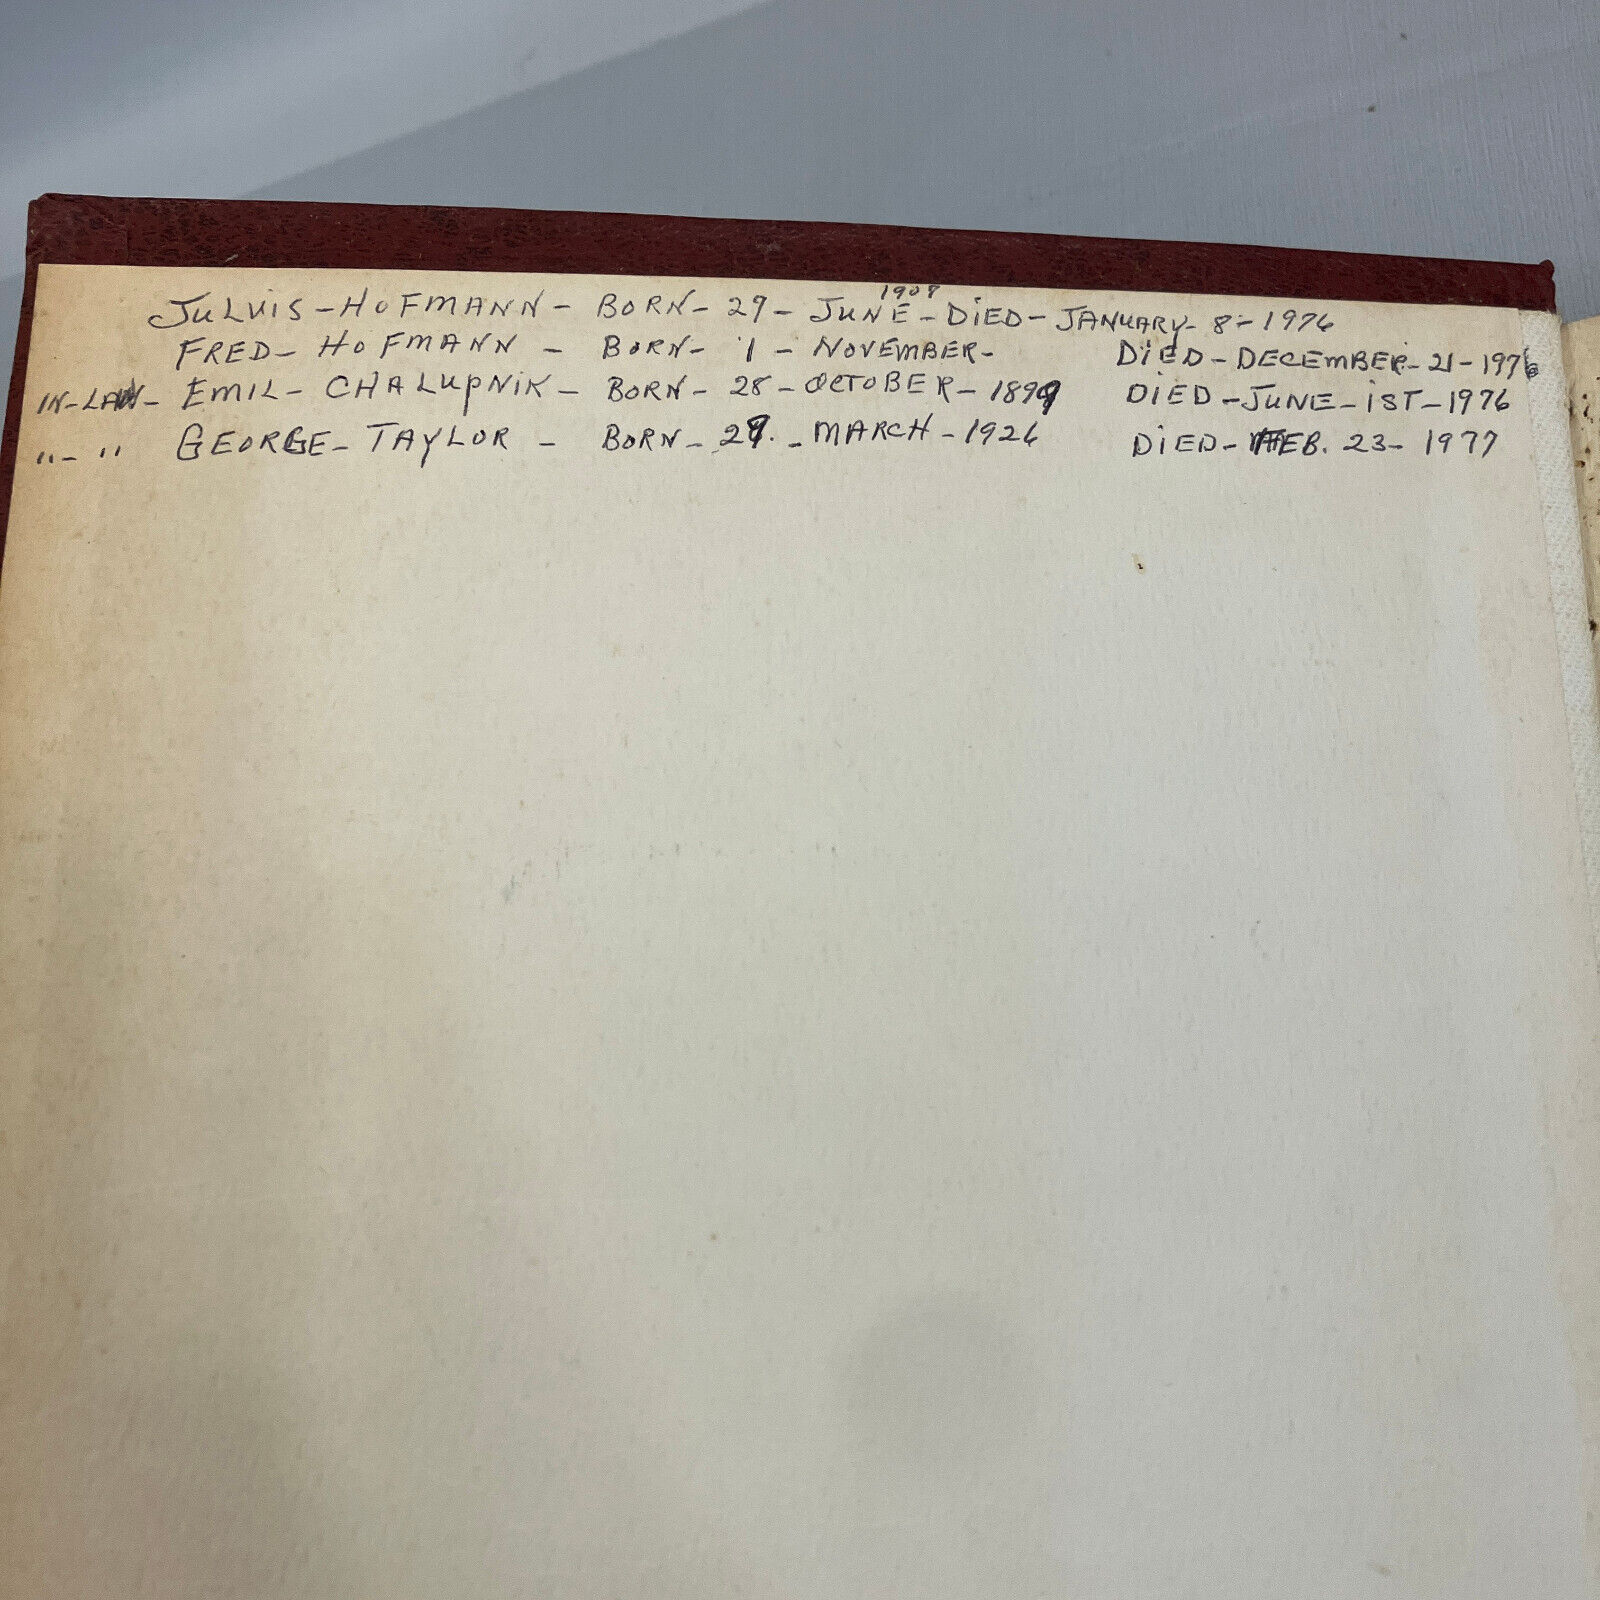 JULVIS - HOFMANN - BORN - 29 - JUNE 1907 - DIED - JANUARY - 8 - 1976
FRED - HOFMANN - BORN - 1 - NOVEMBER - DIED - DECEMBER - 21 - 1976
IN-LAW - EMIL - CHALUPNIK - BORN - 28 - OCTOBER - 1899 DIED - JUNE - 1ST - 1976
" - " GEORGE - TAYLOR - BORN - 29. - MARCH - 1926 DIED - FEB. 23 - 1977